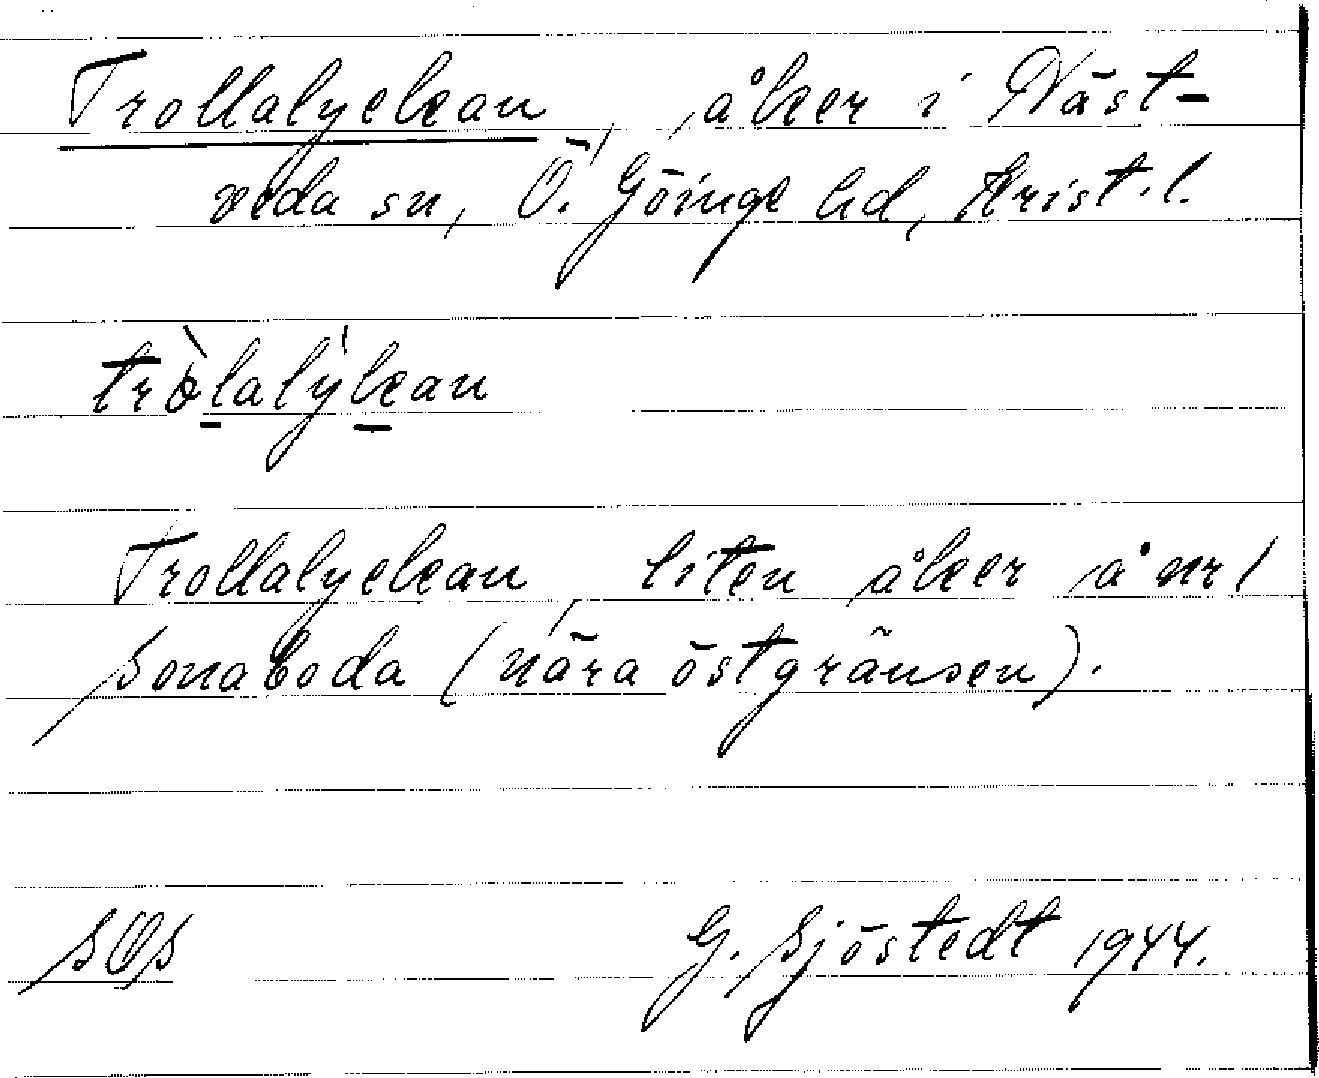 Trollalyckan, åker i Näst-
veda sn, Ö. Göinge hd, Krist. l.
tròlalýkan
Trollalyckan, liten åker å nr 1
Sonaboda (nära östgränsen).
SOS G. Sjöstedt 1944.